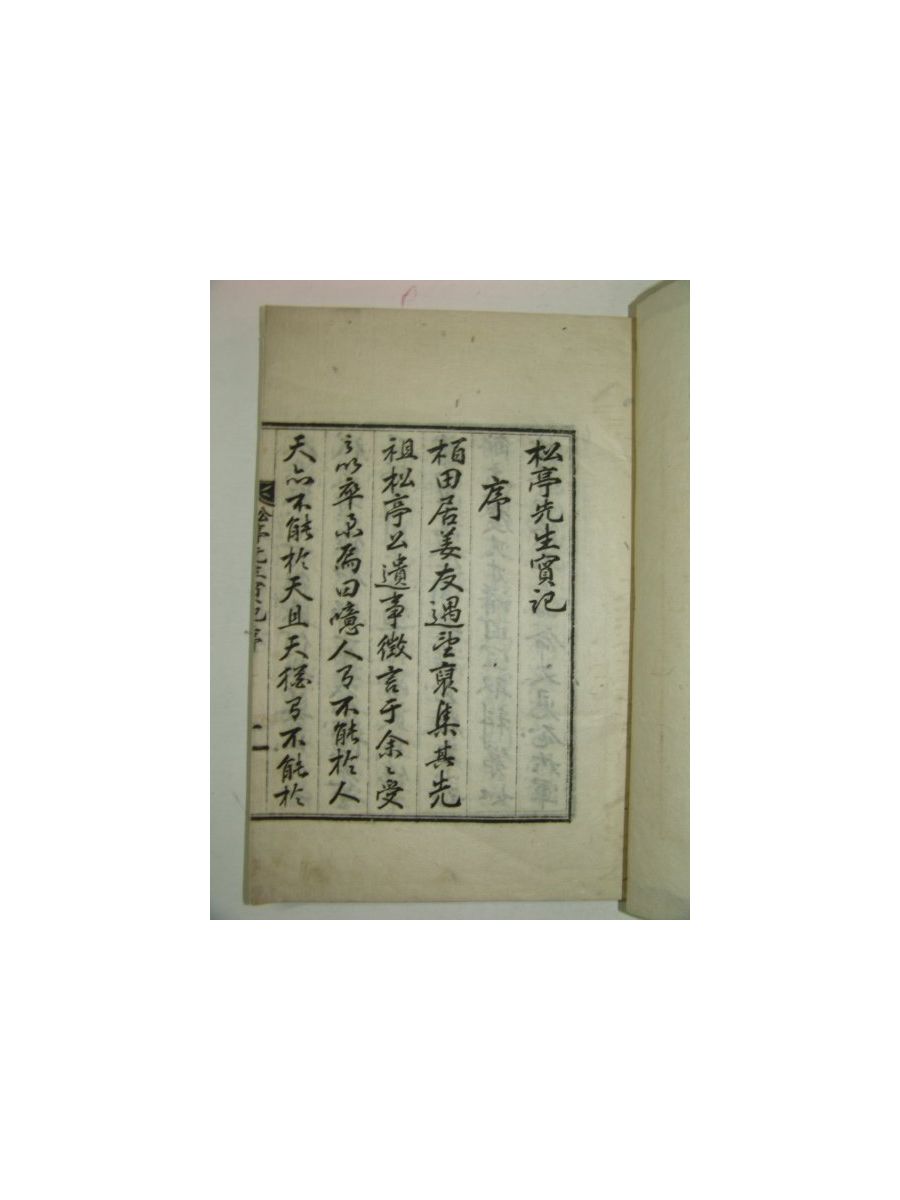 松亭先生實記
序
栢田居姜友遇聖裒集其先
祖松亭公遺事徵言于余〻受
言以卒業焉曰噫人有不能於人
天亦不能於天且天猶有不能於
松亭先生實記序